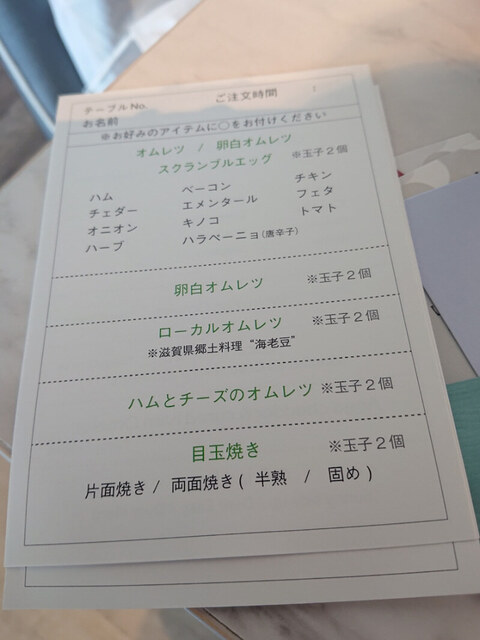 テーブルNo. ご注文時間 :
お名前
※お好みのアイテムに○をお付けください
オムレツ / 卵白オムレツ
スクランブルエッグ ※玉子2個
ハム ベーコン チキン
チェダー エメンタール フェタ
オニオン キノコ トマト
ハーブ ハラペーニョ(唐辛子)
卵白オムレツ ※玉子2個
ローカルオムレツ ※玉子2個
※滋賀県郷土料理“海老豆”
ハムとチーズのオムレツ ※玉子2個
目玉焼き ※玉子2個
片面焼き / 両面焼き( 半熟 / 固め )